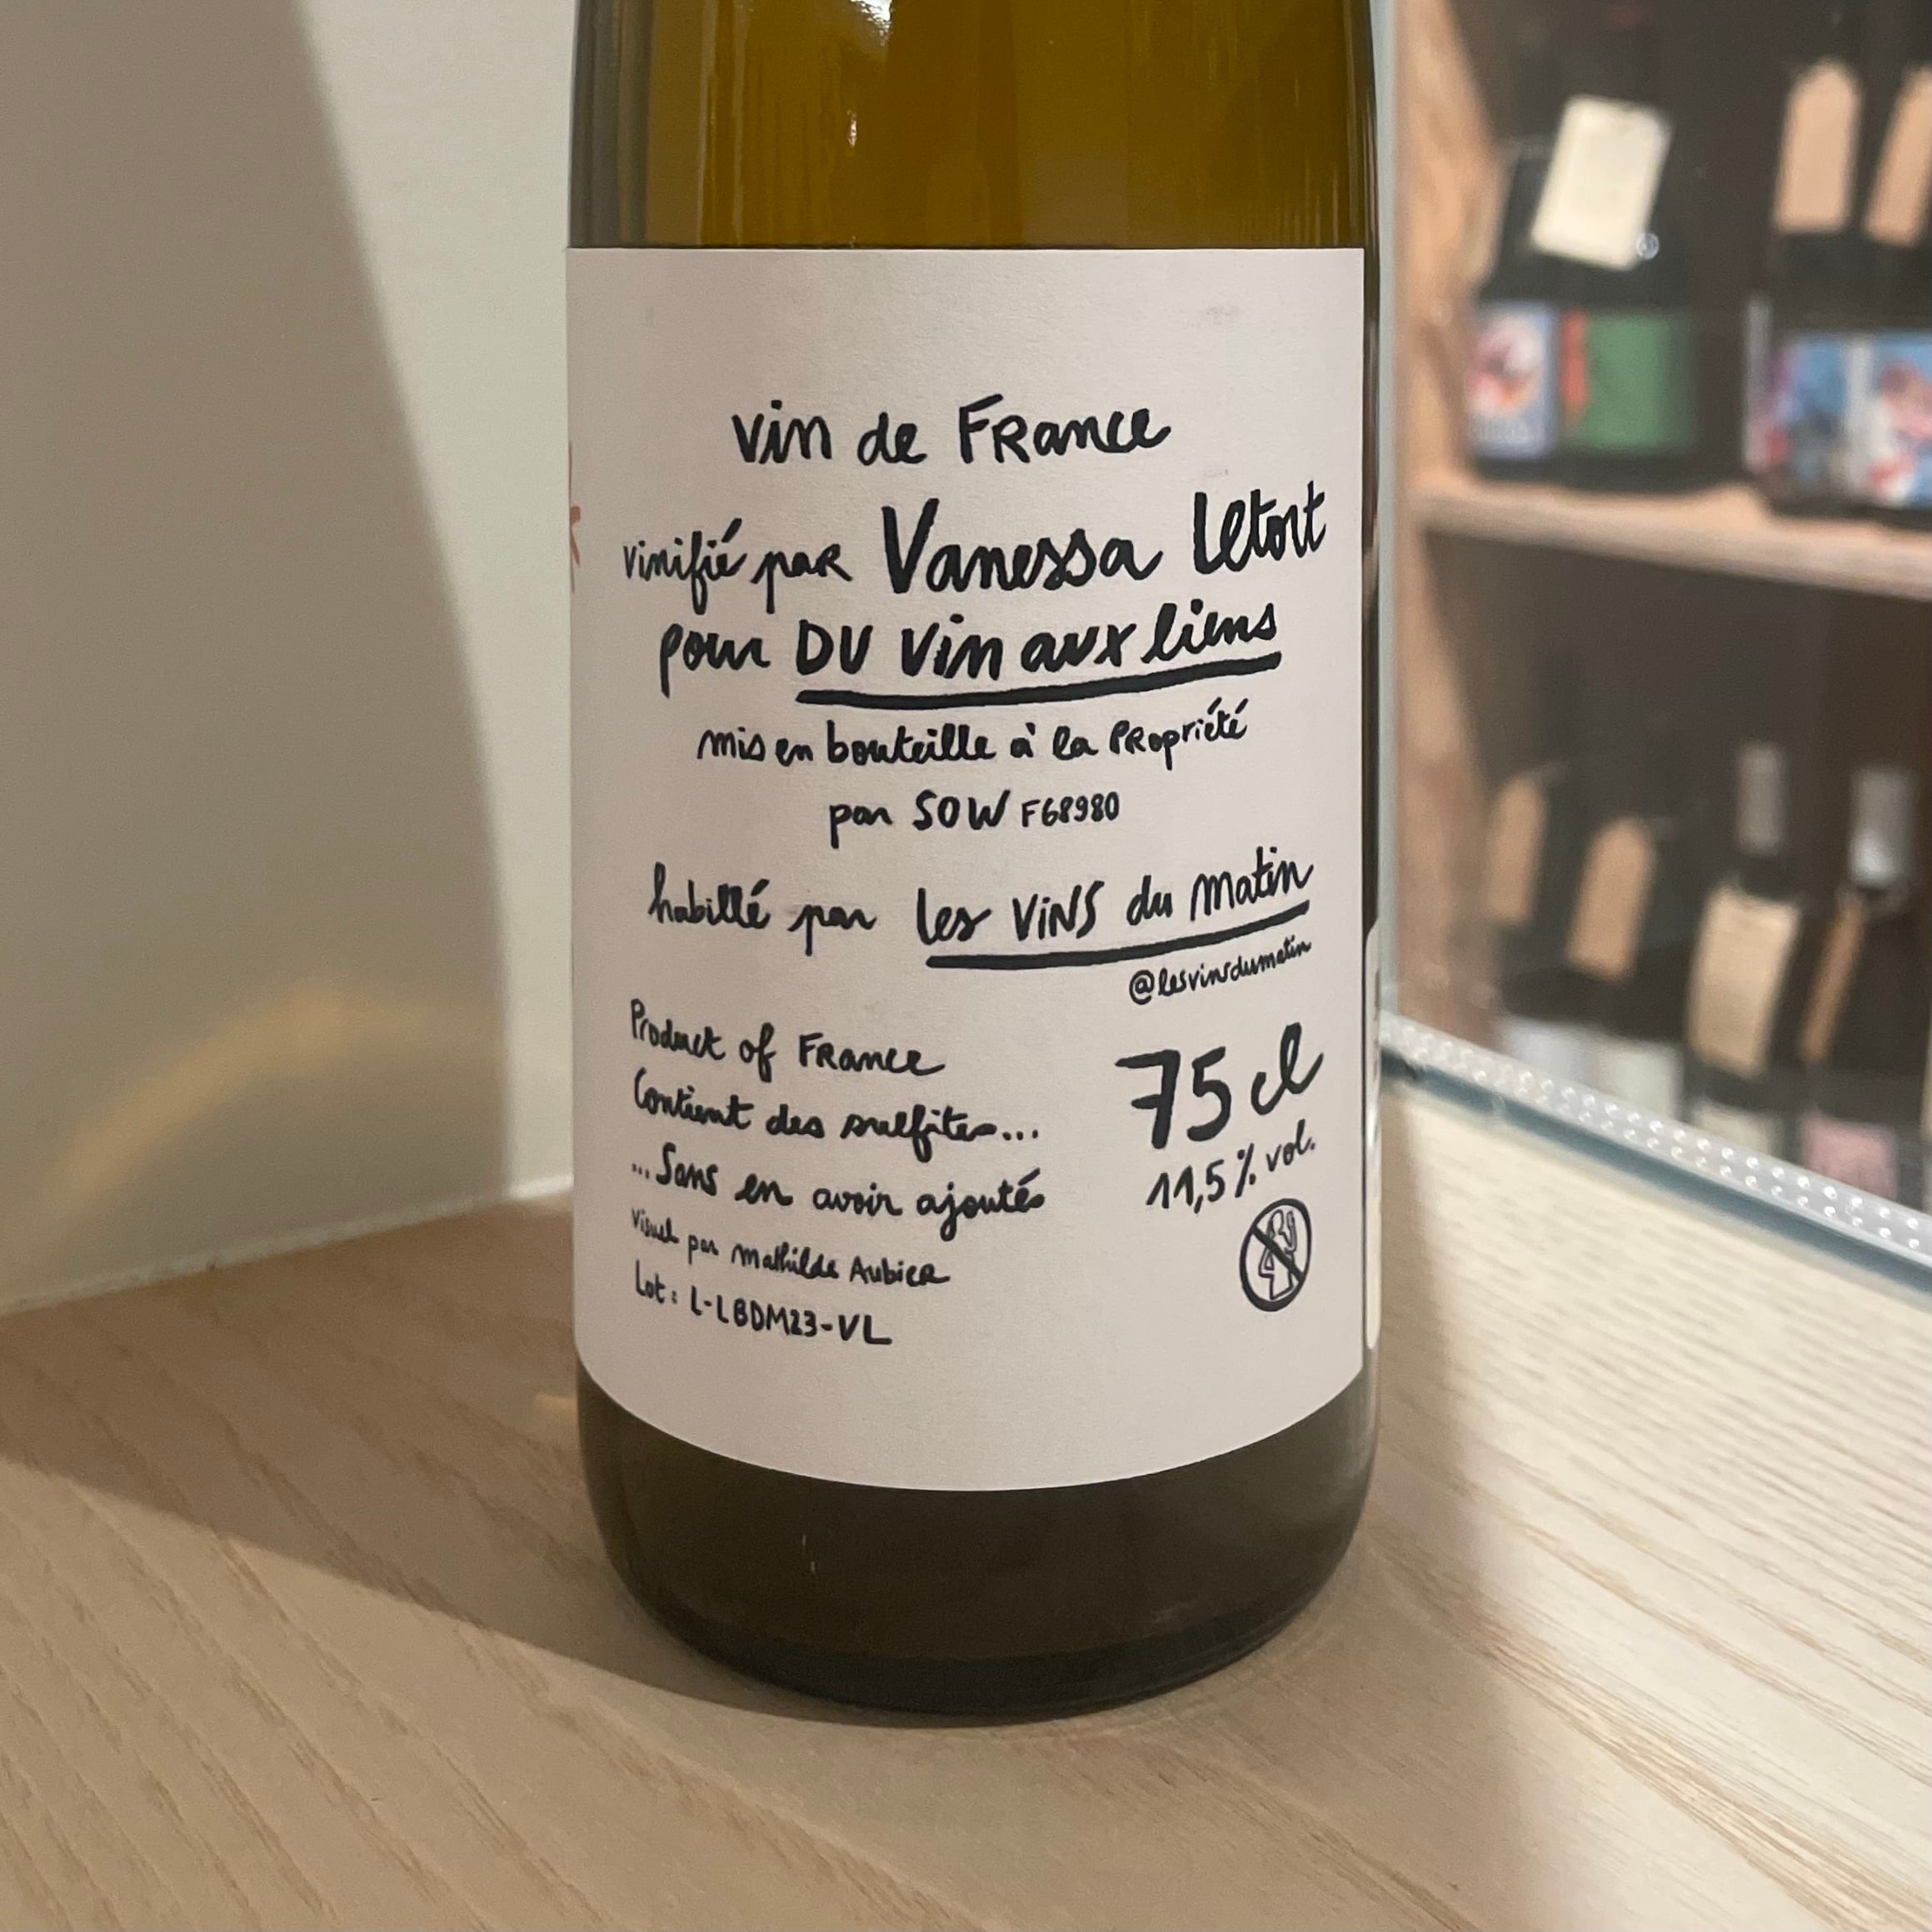 vin de France
vinifié par Vanessa Letort
pour DU vin aux liens
mis en bouteille à la Propriété
par SOW F68980
habillé par les ViNS du matin
@lesvinsdumatin
Product of France
Contient des sulfites...
...Sans en avoir ajoutés
visuel par Mathilde Aubier
Lot: L-LBDM23-VL
75 cl
11,5% vol.